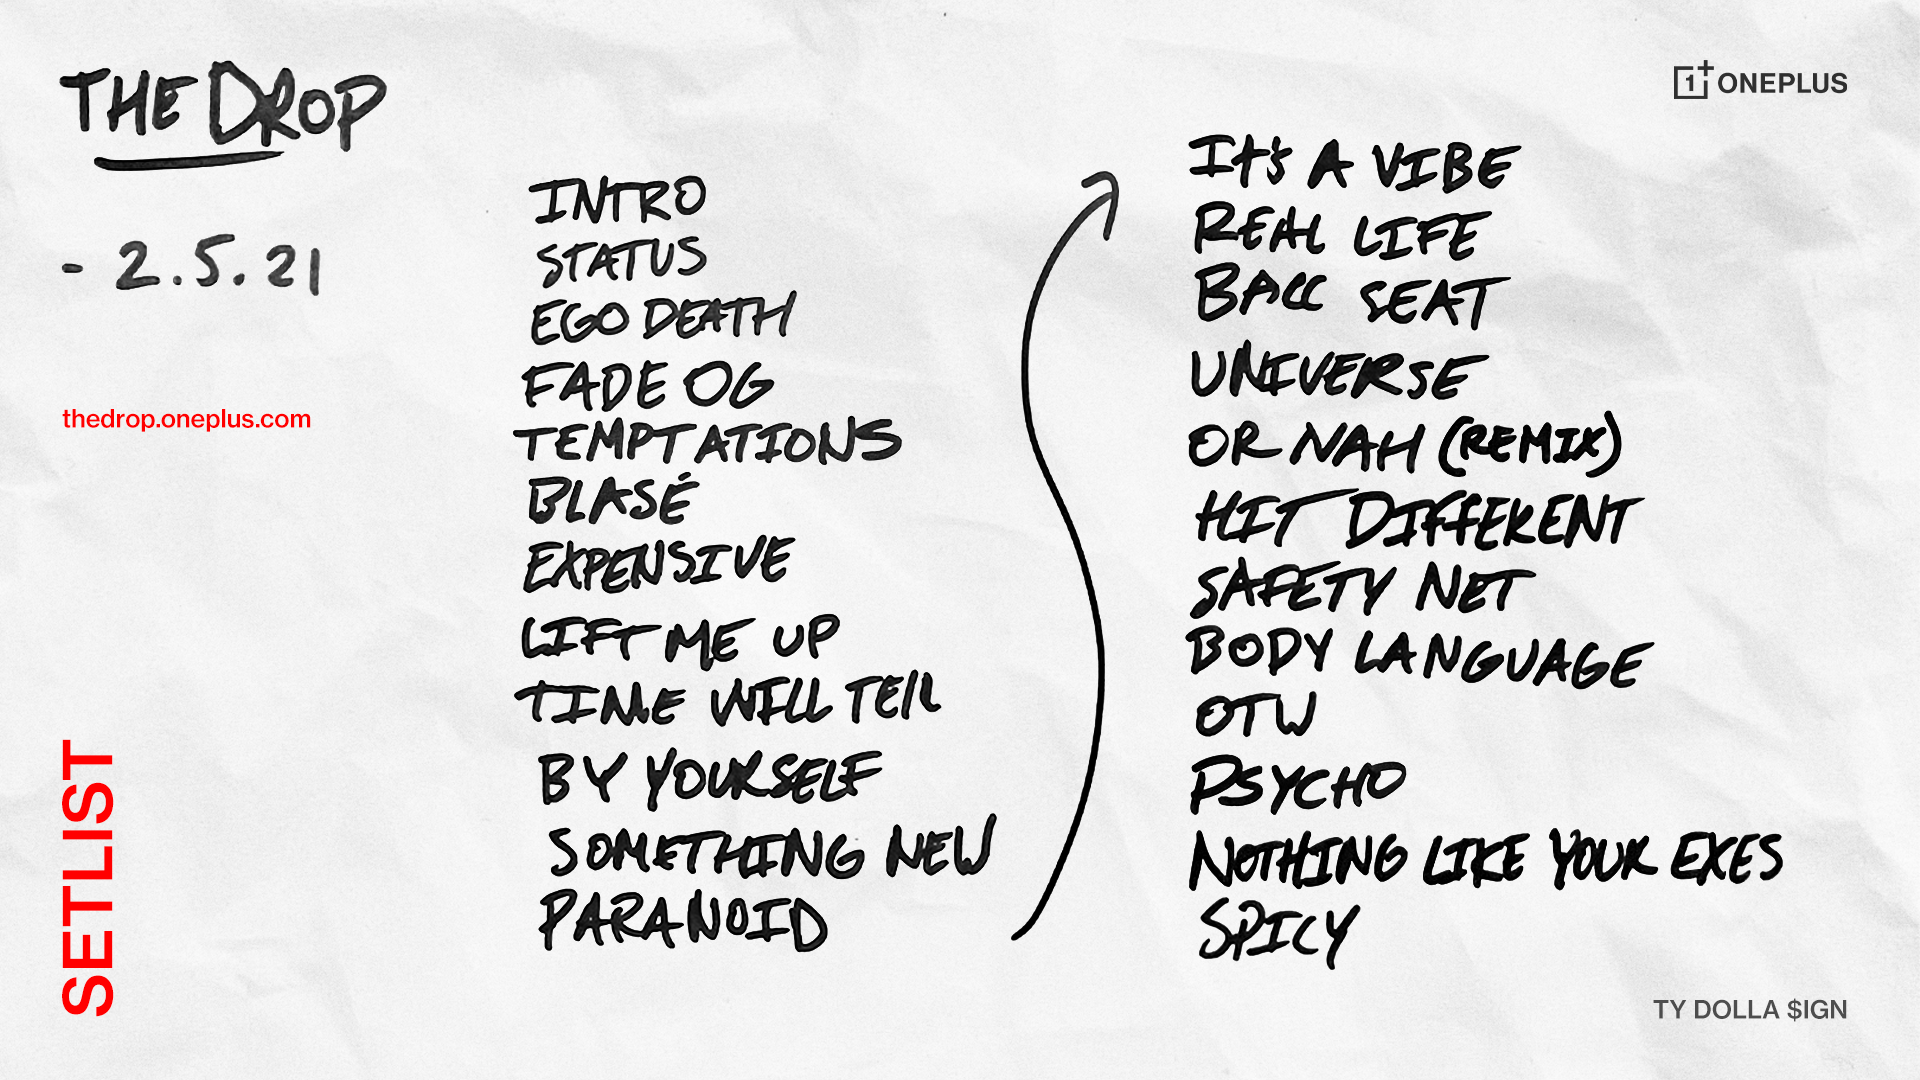 THE DROP
- 2.5.21
thedrop.oneplus.com
SETLIST
INTRO
STATUS
EGO DEATH
FADE OG
TEMPTATIONS
BLASÉ
EXPENSIVE
LIFT ME UP
TIME WILL TELL
BY YOURSELF
SOMETHING NEW
PARANOID
1+ ONEPLUS
It's A VIBE
REAL LIFE
BACC SEAT
UNIVERSE
OR NAH (REMIX)
HIT DIFFERENT
SAFETY NET
BODY LANGUAGE
OTW
PSYCHO
NOTHING LIKE YOUR EXES
SPICY
TY DOLLA $IGN